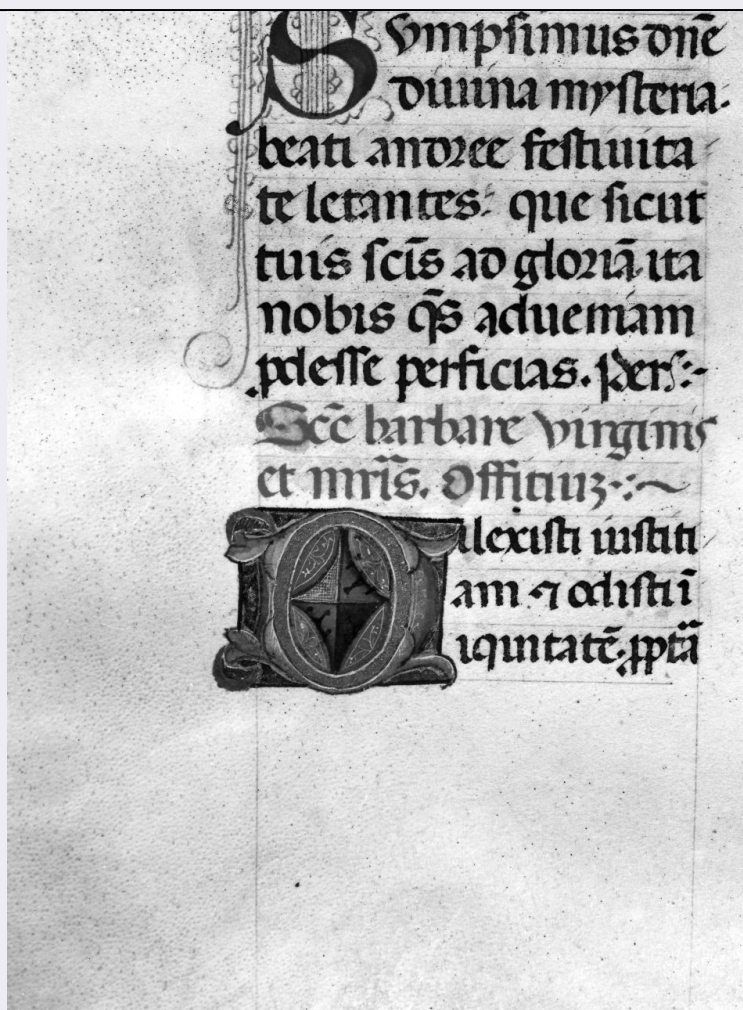 Sumpsimus dn̄e
diuina mysteria.
beati andree festiuita
te letantes: que sicut
tuis sc̄is ad gloriā ita
nobis q̄s ad ueniam
pdesse perficias. Per:
Sc̄e barbare virginis
et mr̄is. Offitiuz
Dilexisti iustiti
am ⁊ odisti ī
iquitatē. ppt̄ā